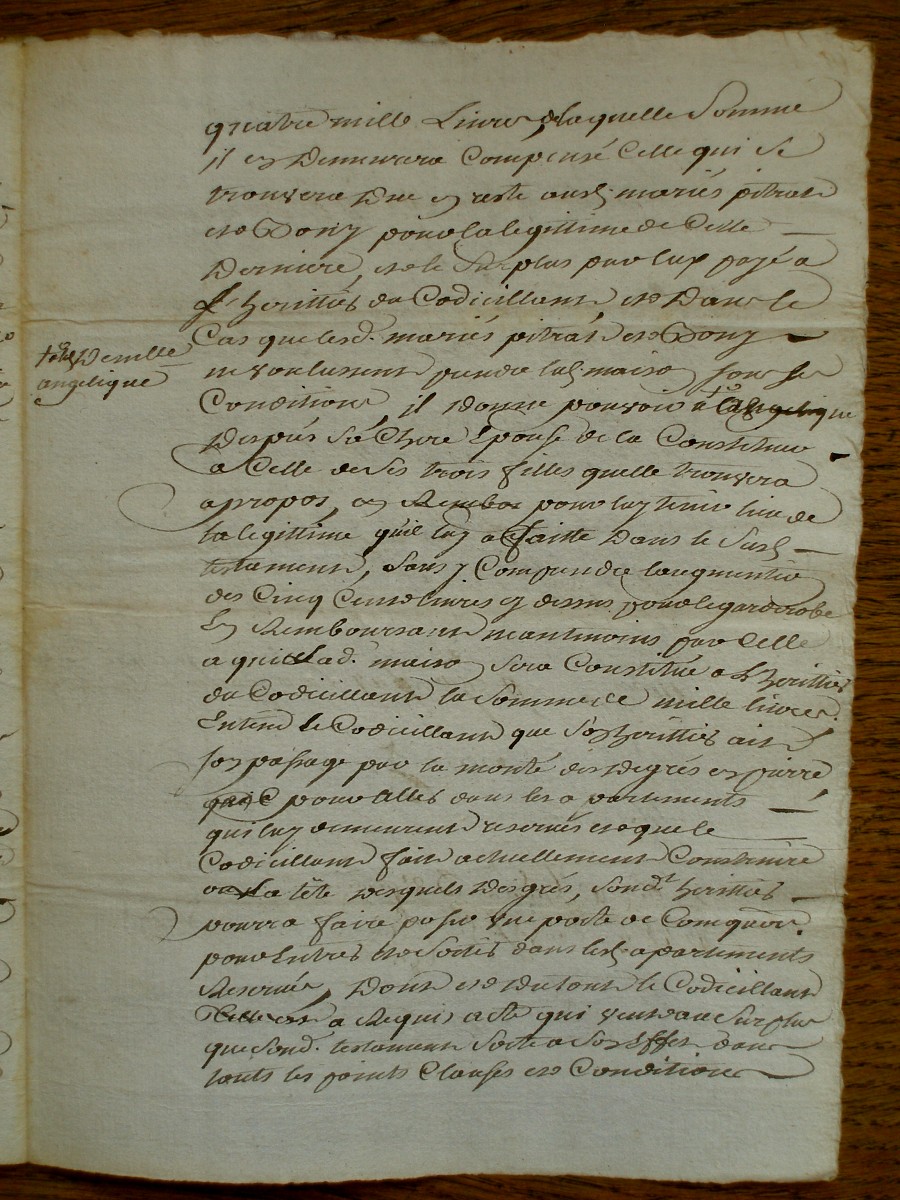 quatre mille Livres, de laquelle Somme
il en Demeurera Compensé Celle qui Se
trouvera Due en reste auxd. mariés pitrat
et Dony pour la legittime de Cette
Derniere, et le Surplus par Eux payé a
l'heritier du Codicillant et Dans le
Cas que lesd. mariés pitrat et Dony
ne voulussent prendre lad. maison sous ses
Conditions, il Donne pouvoir a
Después Sa Chere Epouse de la Constituer
a Celle de Ses trois filles quelle trouvera
apropos, pour luy tenir lieu de
la legittime qu'il luy a faitte Dans le Susd.
testament, Sans y Comprendre laugmentation
des Cinq Cent livres cy dessus pour le garderobe
En Remboursant neantmoins par Celle
a qui Lad. maison Sera Constituée a L'heritier
du Codicillant la Somme de mille livres.
Entend le Codicillant que Son heritier ait
Son passage par la monté des Degrés en pierre
pour aller dans les apartements
qui luy demeurent reservés et que le
Codicillant fait actuellement Construire
a La tête Desquels Degrés, Sond.t heritier
pourra faire poser une porte
pour Entrer et Sortir dans lesd. apartements
Reservés, Dont et Du tout le Codicillant
a Requis acte qui veut au Surplus
que Sond. testament Sorte a Son Effet dans
touts les points Clauses et Conditions
+ Demlle
angelique